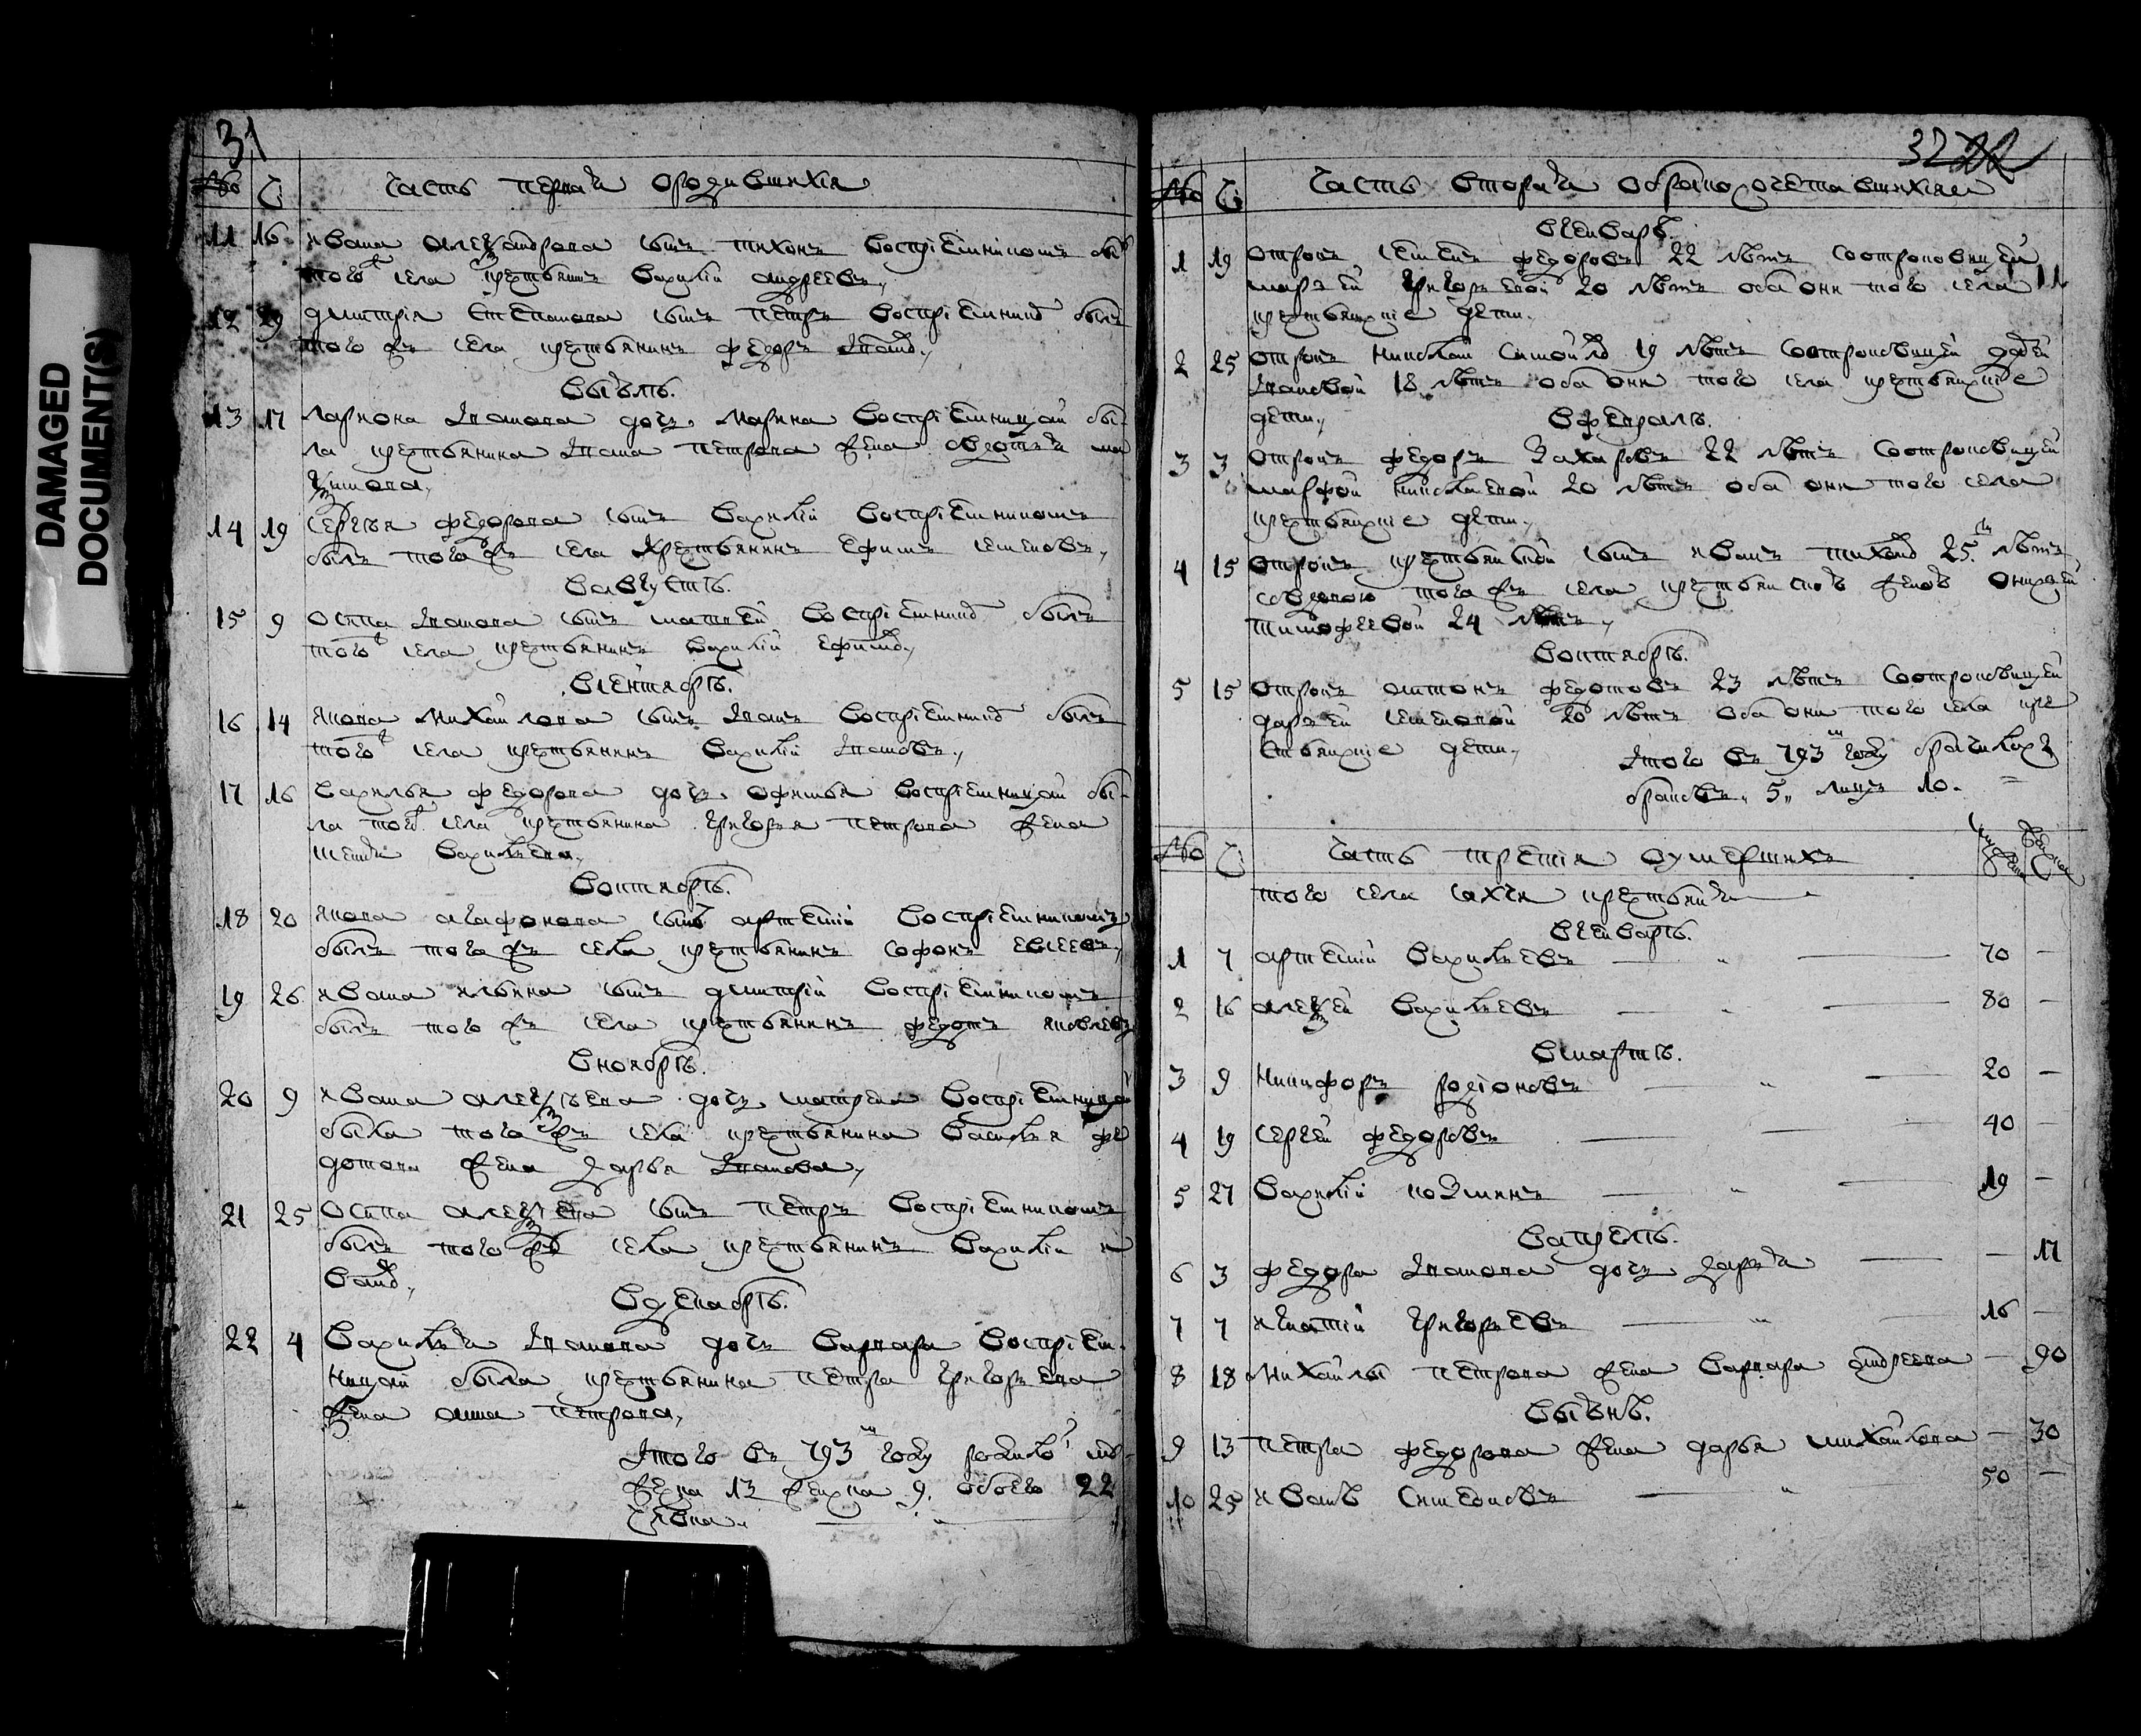 DAMAGED
DOCUMENT(S)
31
№ Ч: Часть первая о родившихся
11 16 Ивана Александрова сынъ Тихонъ восприемникомъ бы
того села крестьянинъ Василий Андреевъ,
12 29 Дмитрия Степанова сынъ Петръ восприемник былъ
того жъ села крестьянинъ Федоръ
В Июль.
13 17 Лариона дочь Марина восприемницею бы-
ла крестьянина Петрова жена Ма
ксимова,
14 19 Сергея Федорова сынъ Василий восприемникомъ
былъ того жъ села крестьянинъ Ефимъ Семеновъ,
В Августъ.
15 9 Осипа сынъ Матвей восприемник былъ
того села крестьянинъ Василий Ефимов,
В Сентябрь.
16 14 Якова Михайлова сынъ восприемник былъ
того села крестьянинъ Василий
17 16 Василья Федорова дочь Офимья восприемницею бы-
ла того села крестьянина Григорья Петрова жена
Васильева,
В Октябрь.
18 20 Якова Агафонова сынъ Артемий восприемникомъ
былъ того жъ села крестьянинъ Софонъ Евсеевъ,
19 26 Ивана Ильина сынъ Дмитрий восприемникомъ
былъ того жъ села крестьянинъ Федотъ Яковлевъ
В Ноябрь.
20 9 Ивана Алексеева дочь Матрена восприемницею
была того жъ села крестьянина Василья Фе
дотова жена Дарья
21 25 Осипа Алексеева сынъ Петръ восприемникомъ
былъ того жъ села крестьянинъ Василий И
ванов,
В Декабрь.
22 4 Василья дочь Варвара восприем-
ницею была крестьянина Петра Григорьева
жена Анна Петрова,
Итого въ 793 году родилос му-
жеска 13 женска 9. обоего 22
человека.
32
№ Ч: Часть вторая о бракосочетавшихся
В Генварь.
1 19 Отрокъ Семенъ Федоровъ 22 летъ со отроковицей
Марьей Григорьевой 20 летъ оба они того села 11
крестьянские дети.
2 25 Отрокъ Николай 19 летъ со отроковицей
18 летъ оба они того села крестьянские
дети,
В Февраль.
3 3 Отрокъ Федоръ Захаровъ 22 летъ со отроковицей
Марфой Николаевой 20 летъ оба они того села
крестьянские дети,
4 15 Отрокъ крестьянской сынъ Иванъ Тихонов 25 летъ
со вдовою того жъ села крестьянской женой
Тимофеевой 24 летъ,
В Октябрь.
5 15 Отрокъ Антонъ Федотовъ 23 летъ со отроковицей
Дарьей Семеновой 20 летъ оба они того села кре
стьянские дети,
Итого въ 793 году
браковъ 5 лицъ 10.
№ Ч: Часть третия о умершихъ
того села крестьяня
В Генварь.
1 7 Артемий Васильевъ — 70 —
2 16 Алексей Васильевъ — 80 —
В Мартъ.
3 9 Никифоръ Родионовъ — 20 —
4 19 Сергей Федоровъ — 40 —
5 27 Василий Козминъ — 19 —
В Апрель.
6 3 Федора дочь Дарья — — 17
7 7 Игнатий Григорьевъ — 16 —
8 18 Михайлы Петрова жена Варвара Андреева — 90
В Июнь.
9 13 Петра Федорова жена Дарья Михайлова — 30
10 25 Иванъ Симеоновъ — 50 —